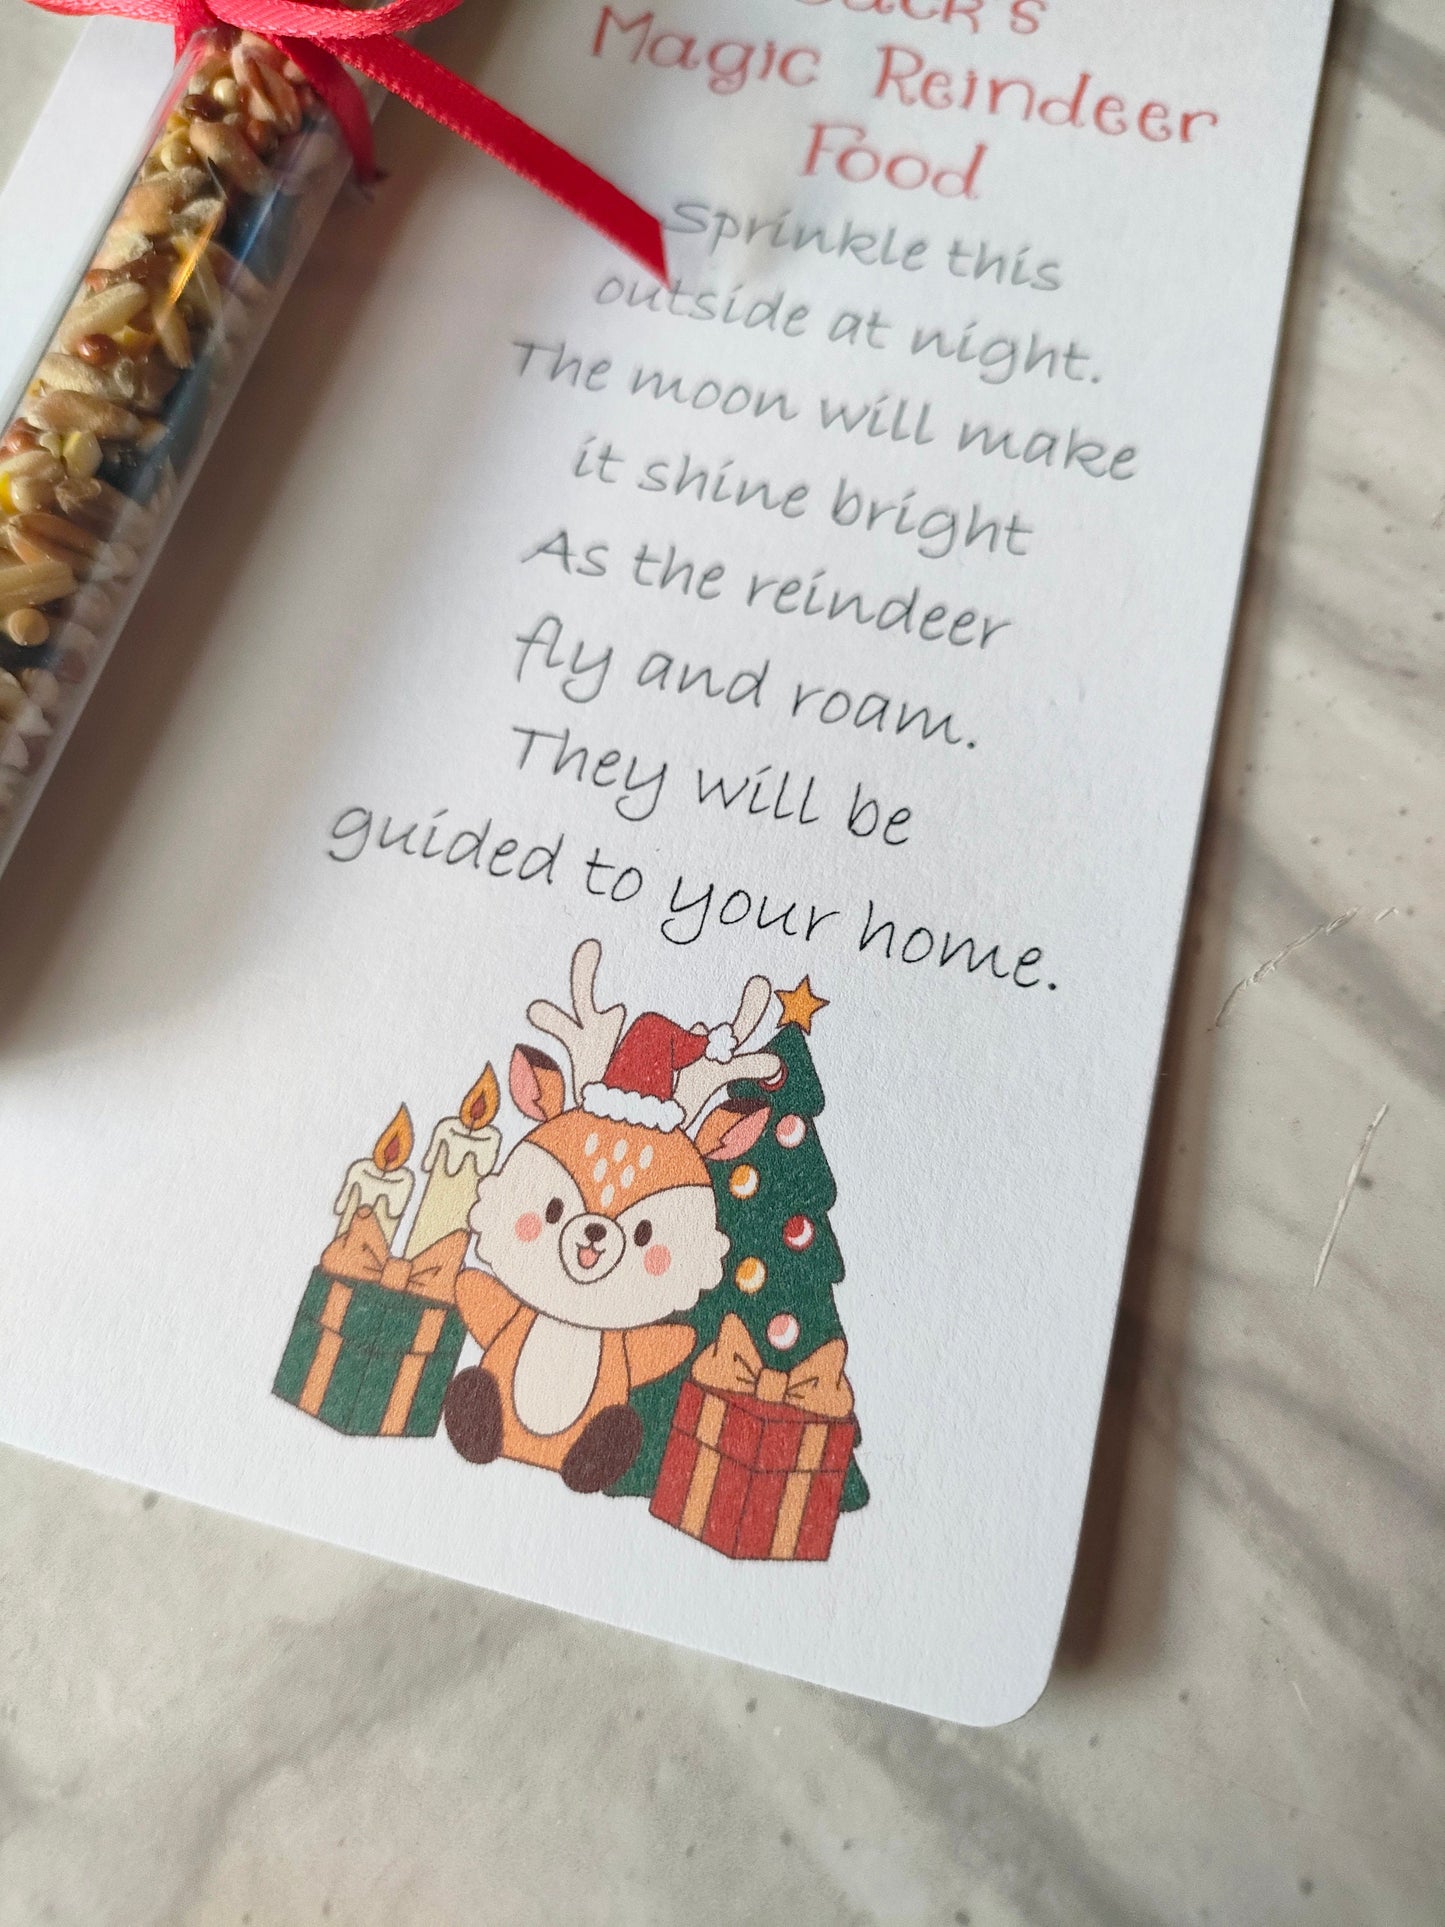 Magic Reindeer
Food
Sprinkle this
outside at night.
The moon will make
it shine bright
As the reindeer
fly and roam.
They will be
guided to your home.